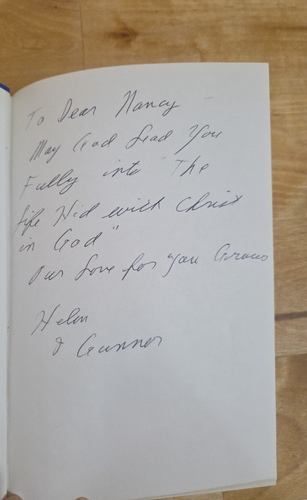 To Dear Nancy
May God Lead You
Fully into "The
Life Hid with Christ
in God"
Our Love for you Grows
Helen
& Gunnor